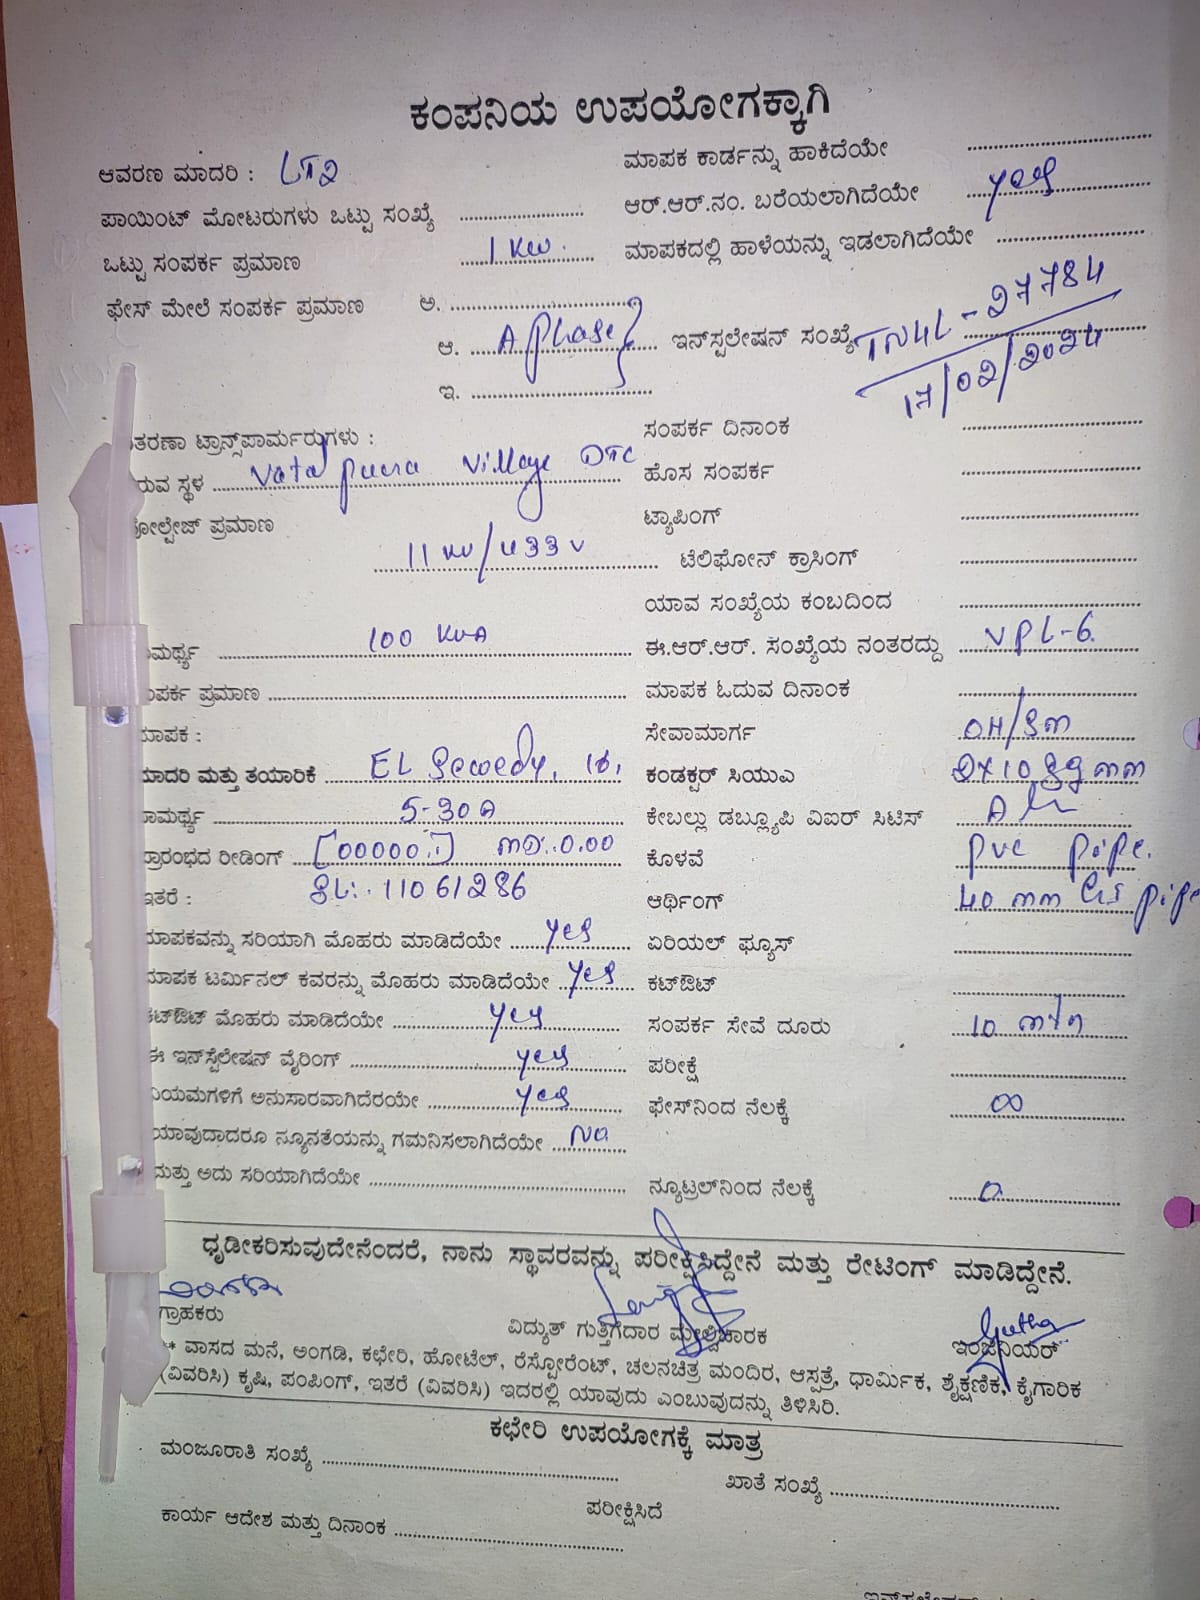 ಕಂಪನಿಯ ಉಪಯೋಗಕ್ಕಾಗಿ
ಆವರಣ ಮಾದರಿ : LT2
ಪಾಯಿಂಟ್ ಮೋಟರುಗಳು ಒಟ್ಟು ಸಂಖ್ಯೆ
ಒಟ್ಟು ಸಂಪರ್ಕ ಪ್ರಮಾಣ 1 KW.
ಫೇಸ್ ಮೇಲೆ ಸಂಪರ್ಕ ಪ್ರಮಾಣ ಅ.
ಆ. A phase
ಇ.
ಮಾಪಕ ಕಾರ್ಡನ್ನು ಹಾಕಿದೆಯೇ
ಆರ್.ಆರ್.ನಂ. ಬರೆಯಲಾಗಿದೆಯೇ yes
ಮಾಪಕದಲ್ಲಿ ಹಾಳೆಯನ್ನು ಇಡಲಾಗಿದೆಯೇ
ಇನ್‌ಸ್ಟಲೇಷನ್ ಸಂಖ್ಯೆ TN4L-27784
17/02/2024
ತರಣಾ ಟ್ರಾನ್ಸ್‌ಪಾರ್ಮರುಗಳು :
ಯವ ಸ್ಥಳ Vatapuura Village DTC
ೋಲ್ಟೇಜ್ ಪ್ರಮಾಣ
11 KV/433 V
ಮರ್ಥ್ಯ 100 KVA
ಪರ್ಕ ಪ್ರಮಾಣ
ಮಾಪಕ :
ಮಾದರಿ ಮತ್ತು ತಯಾರಿಕೆ EL Sewedy, 1Φ,
ಾಮರ್ಥ್ಯ 5-30A
ಪ್ರಾರಂಭದ ರೀಡಿಂಗ್ [00000.1] MD:.0.00
ಇತರೆ : SL:. 11061286
ಮಾಪಕವನ್ನು ಸರಿಯಾಗಿ ಮೊಹರು ಮಾಡಿದೆಯೇ yes
ಮಾಪಕ ಟರ್ಮಿನಲ್ ಕವರನ್ನು ಮೊಹರು ಮಾಡಿದೆಯೇ yes
ಕಟ್‌ಔಟ್ ಮೊಹರು ಮಾಡಿದೆಯೇ yes
ಈ ಇನ್‌ಸ್ಟೆಲೇಷನ್ ವೈರಿಂಗ್ yes
ನಿಯಮಗಳಿಗೆ ಅನುಸಾರವಾಗಿದೆರಯೇ yes
ಯಾವುದಾದರೂ ನ್ಯೂನತೆಯನ್ನು ಗಮನಿಸಲಾಗಿದೆಯೇ No
ಮತ್ತು ಅದು ಸರಿಯಾಗಿದೆಯೇ
ಸಂಪರ್ಕ ದಿನಾಂಕ
ಹೊಸ ಸಂಪರ್ಕ
ಟ್ಯಾಪಿಂಗ್
ಟೆಲಿಫೋನ್ ಕ್ರಾಸಿಂಗ್
ಯಾವ ಸಂಖ್ಯೆಯ ಕಂಬದಿಂದ
ಈ.ಆರ್.ಆರ್. ಸಂಖ್ಯೆಯ ನಂತರದ್ದು VPL-6.
ಮಾಪಕ ಓದುವ ದಿನಾಂಕ
ಸೇವಾಮಾರ್ಗ OH/SM
ಕಂಡಕ್ಟರ್ ಸಿಯುಎ 2X10 Sq mm
ಕೇಬಲ್ಲು ಡಬ್ಲ್ಯೂಪಿ ವಿಐರ್ ಸಿಟಿಸ್
ಕೊಳವೆ PVC Pipe.
ಆರ್ಥಿಂಗ್ 40 mm GI pipe
ಏರಿಯಲ್ ಫ್ಯೂಸ್
ಕಟ್‌ಔಟ್
ಸಂಪರ್ಕ ಸೇವೆ ದೂರು 10 mtr
ಪರೀಕ್ಷೆ
ಫೇಸ್‌ನಿಂದ ನೆಲಕ್ಕೆ ∞
ನ್ಯೂಟ್ರಲ್‌ನಿಂದ ನೆಲಕ್ಕೆ 0
ಧೃಡೀಕರಿಸುವುದೇನೆಂದರೆ, ನಾನು ಸ್ಥಾವರವನ್ನು ಪರೀಕ್ಷಿಸಿದ್ದೇನೆ ಮತ್ತು ರೇಟಿಂಗ್ ಮಾಡಿದ್ದೇನೆ.
ಗ್ರಾಹಕರು ವಿದ್ಯುತ್ ಗುತ್ತಿಗೆದಾರ ಮೇಲ್ವಿಚಾರಕ ಇಂಜಿನಿಯರ್
** ವಾಸದ ಮನೆ, ಅಂಗಡಿ, ಕಛೇರಿ, ಹೋಟೆಲ್, ರೆಸ್ಟೋರೆಂಟ್, ಚಲನಚಿತ್ರ ಮಂದಿರ, ಆಸ್ಪತ್ರೆ, ಧಾರ್ಮಿಕ, ಶೈಕ್ಷಣಿಕ, ಕೈಗಾರಿಕ
(ವಿವರಿಸಿ) ಕೃಷಿ, ಪಂಪಿಂಗ್, ಇತರೆ (ವಿವರಿಸಿ) ಇದರಲ್ಲಿ ಯಾವುದು ಎಂಬುವುದನ್ನು ತಿಳಿಸಿರಿ.
ಕಛೇರಿ ಉಪಯೋಗಕ್ಕೆ ಮಾತ್ರ
ಮಂಜೂರಾತಿ ಸಂಖ್ಯೆ ಖಾತೆ ಸಂಖ್ಯೆ
ಪರೀಕ್ಷಿಸಿದೆ
ಕಾರ್ಯ ಆದೇಶ ಮತ್ತು ದಿನಾಂಕ